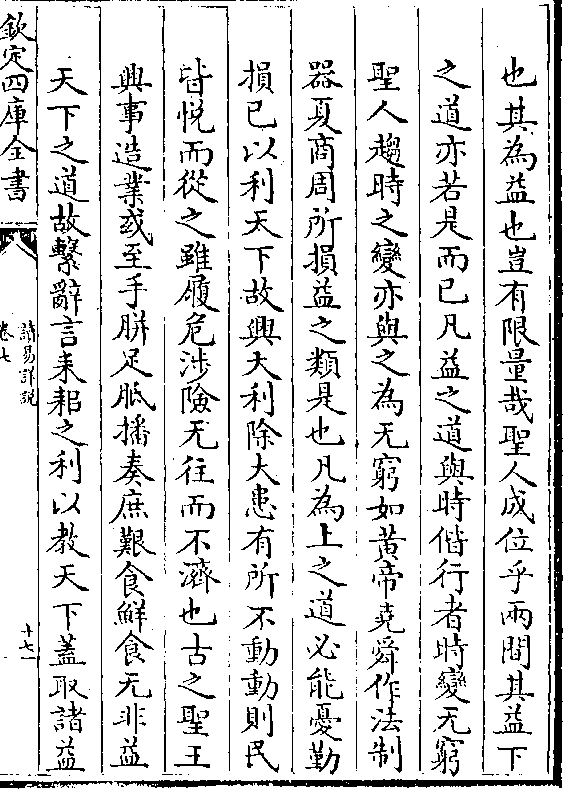 也其為益也豈有限量哉聖人成位乎兩間其益下
之道亦若是而已凡益之道與時偕行者時變无窮
聖人趨時之變亦與之為无窮如黃帝堯舜作法制
器夏商周所損益之類是也凡為上之道必能憂勤
損已以利天下故興大利除大患有所不動動則民
皆悅而從之雖履危涉險无往而不濟也古之聖王
興事造業或至手胼足胝播奏庶艱食鮮食无非益
天下之道故繫辭言耒耜之利以教天下蓋取諸益
欽定四庫全書
讀易詳說
卷七
十七